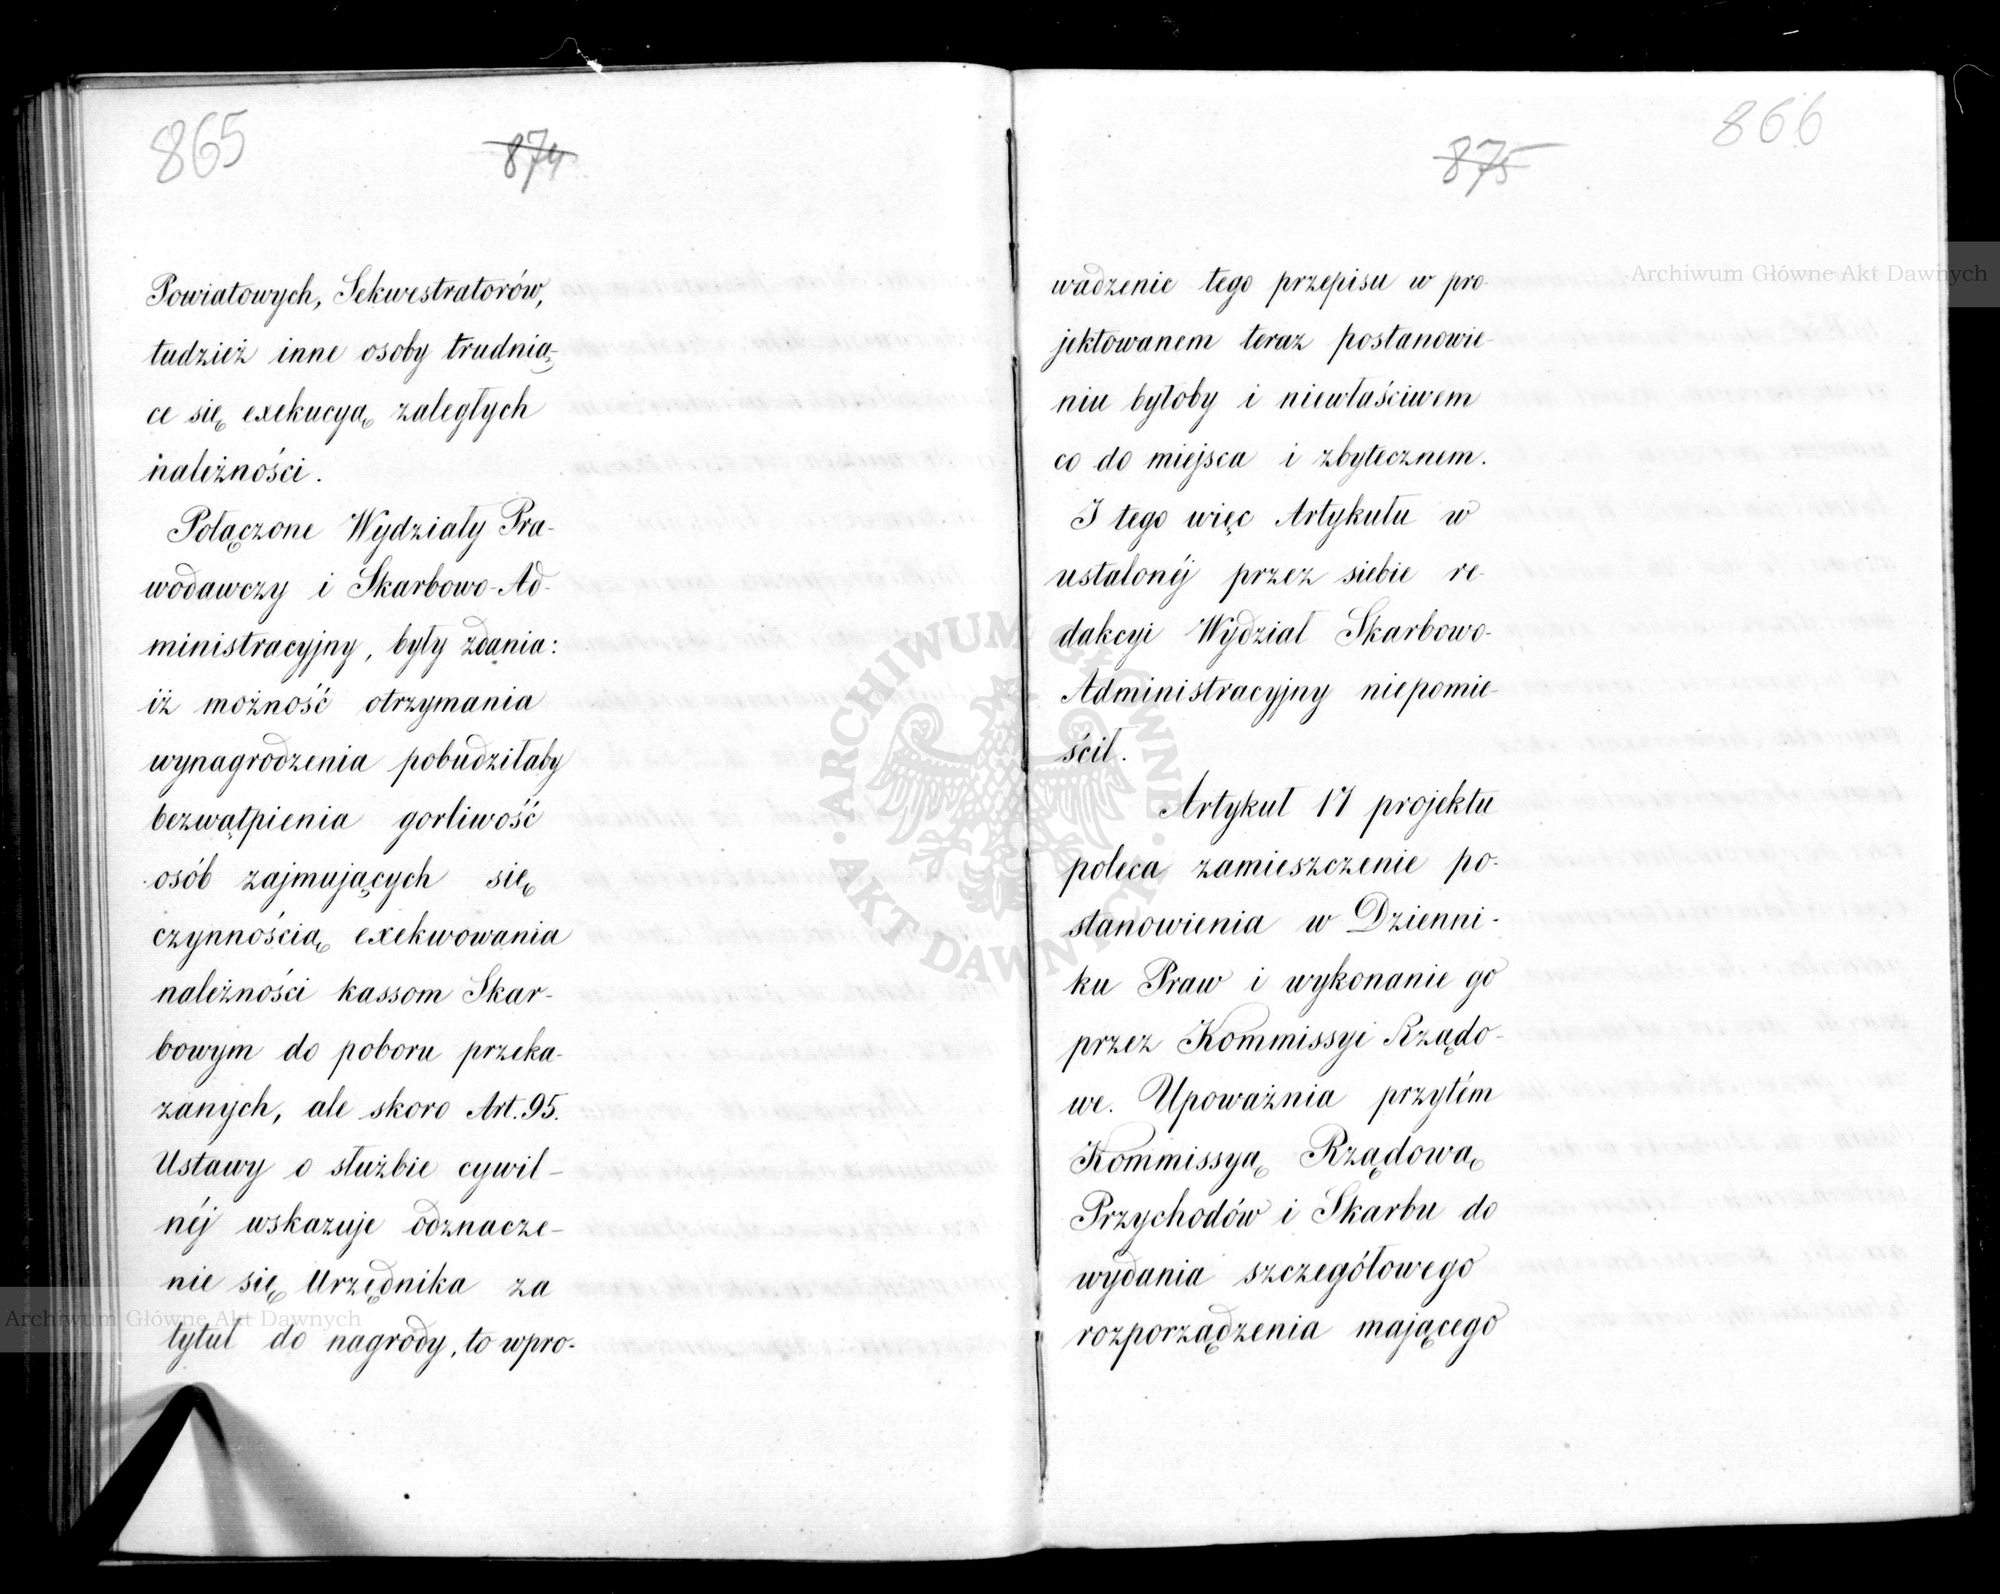 865
874
Powiatowych, Sekwestratorów,
tudzież inne osoby trudnią-
ce się exekucyą zaległych
należności.
Połączone Wydziały Pra-
wodawczy i Skarbowo-Ad-
ministracyjny, były zdania:
iż możność otrzymania
wynagrodzenia pobudziłaby
bezwątpienia gorliwość
osób zajmujących się
czynnością exekwowania
należności kassom Skar-
bowym do poboru przeka-
zanych, ale skoro Art. 95.
Ustawy o służbie cywil-
néj wskazuje odznacze-
nie się Urzędnika za
tytuł do nagrody, to wpro-
866
875
wadzenie tego przepisu w pro-
jektowanem teraz postanowie-
niu byłoby i niewłaściwem
co do miejsca i zbytecznem.
I tego więc Artykułu w
ustalonéj przez siebie re-
dakcyi Wydział Skarbowo-
Administracyjny niepomie-
ścił.
Artykuł 17 projektu
poleca zamieszczenie po-
stanowienia w Dzienni-
ku Praw i wykonanie go
przez Kommissyi Rządo-
we. Upoważnia przytém
Kommissyą Rządową
Przychodów i Skarbu do
wydania szczegółowego
rozporządzenia mającego
Archiwum Główne Akt Dawnych
ARCHIWUM GŁÓWNE AKT DAWNYCH
Archiwum Główne Akt Dawnych